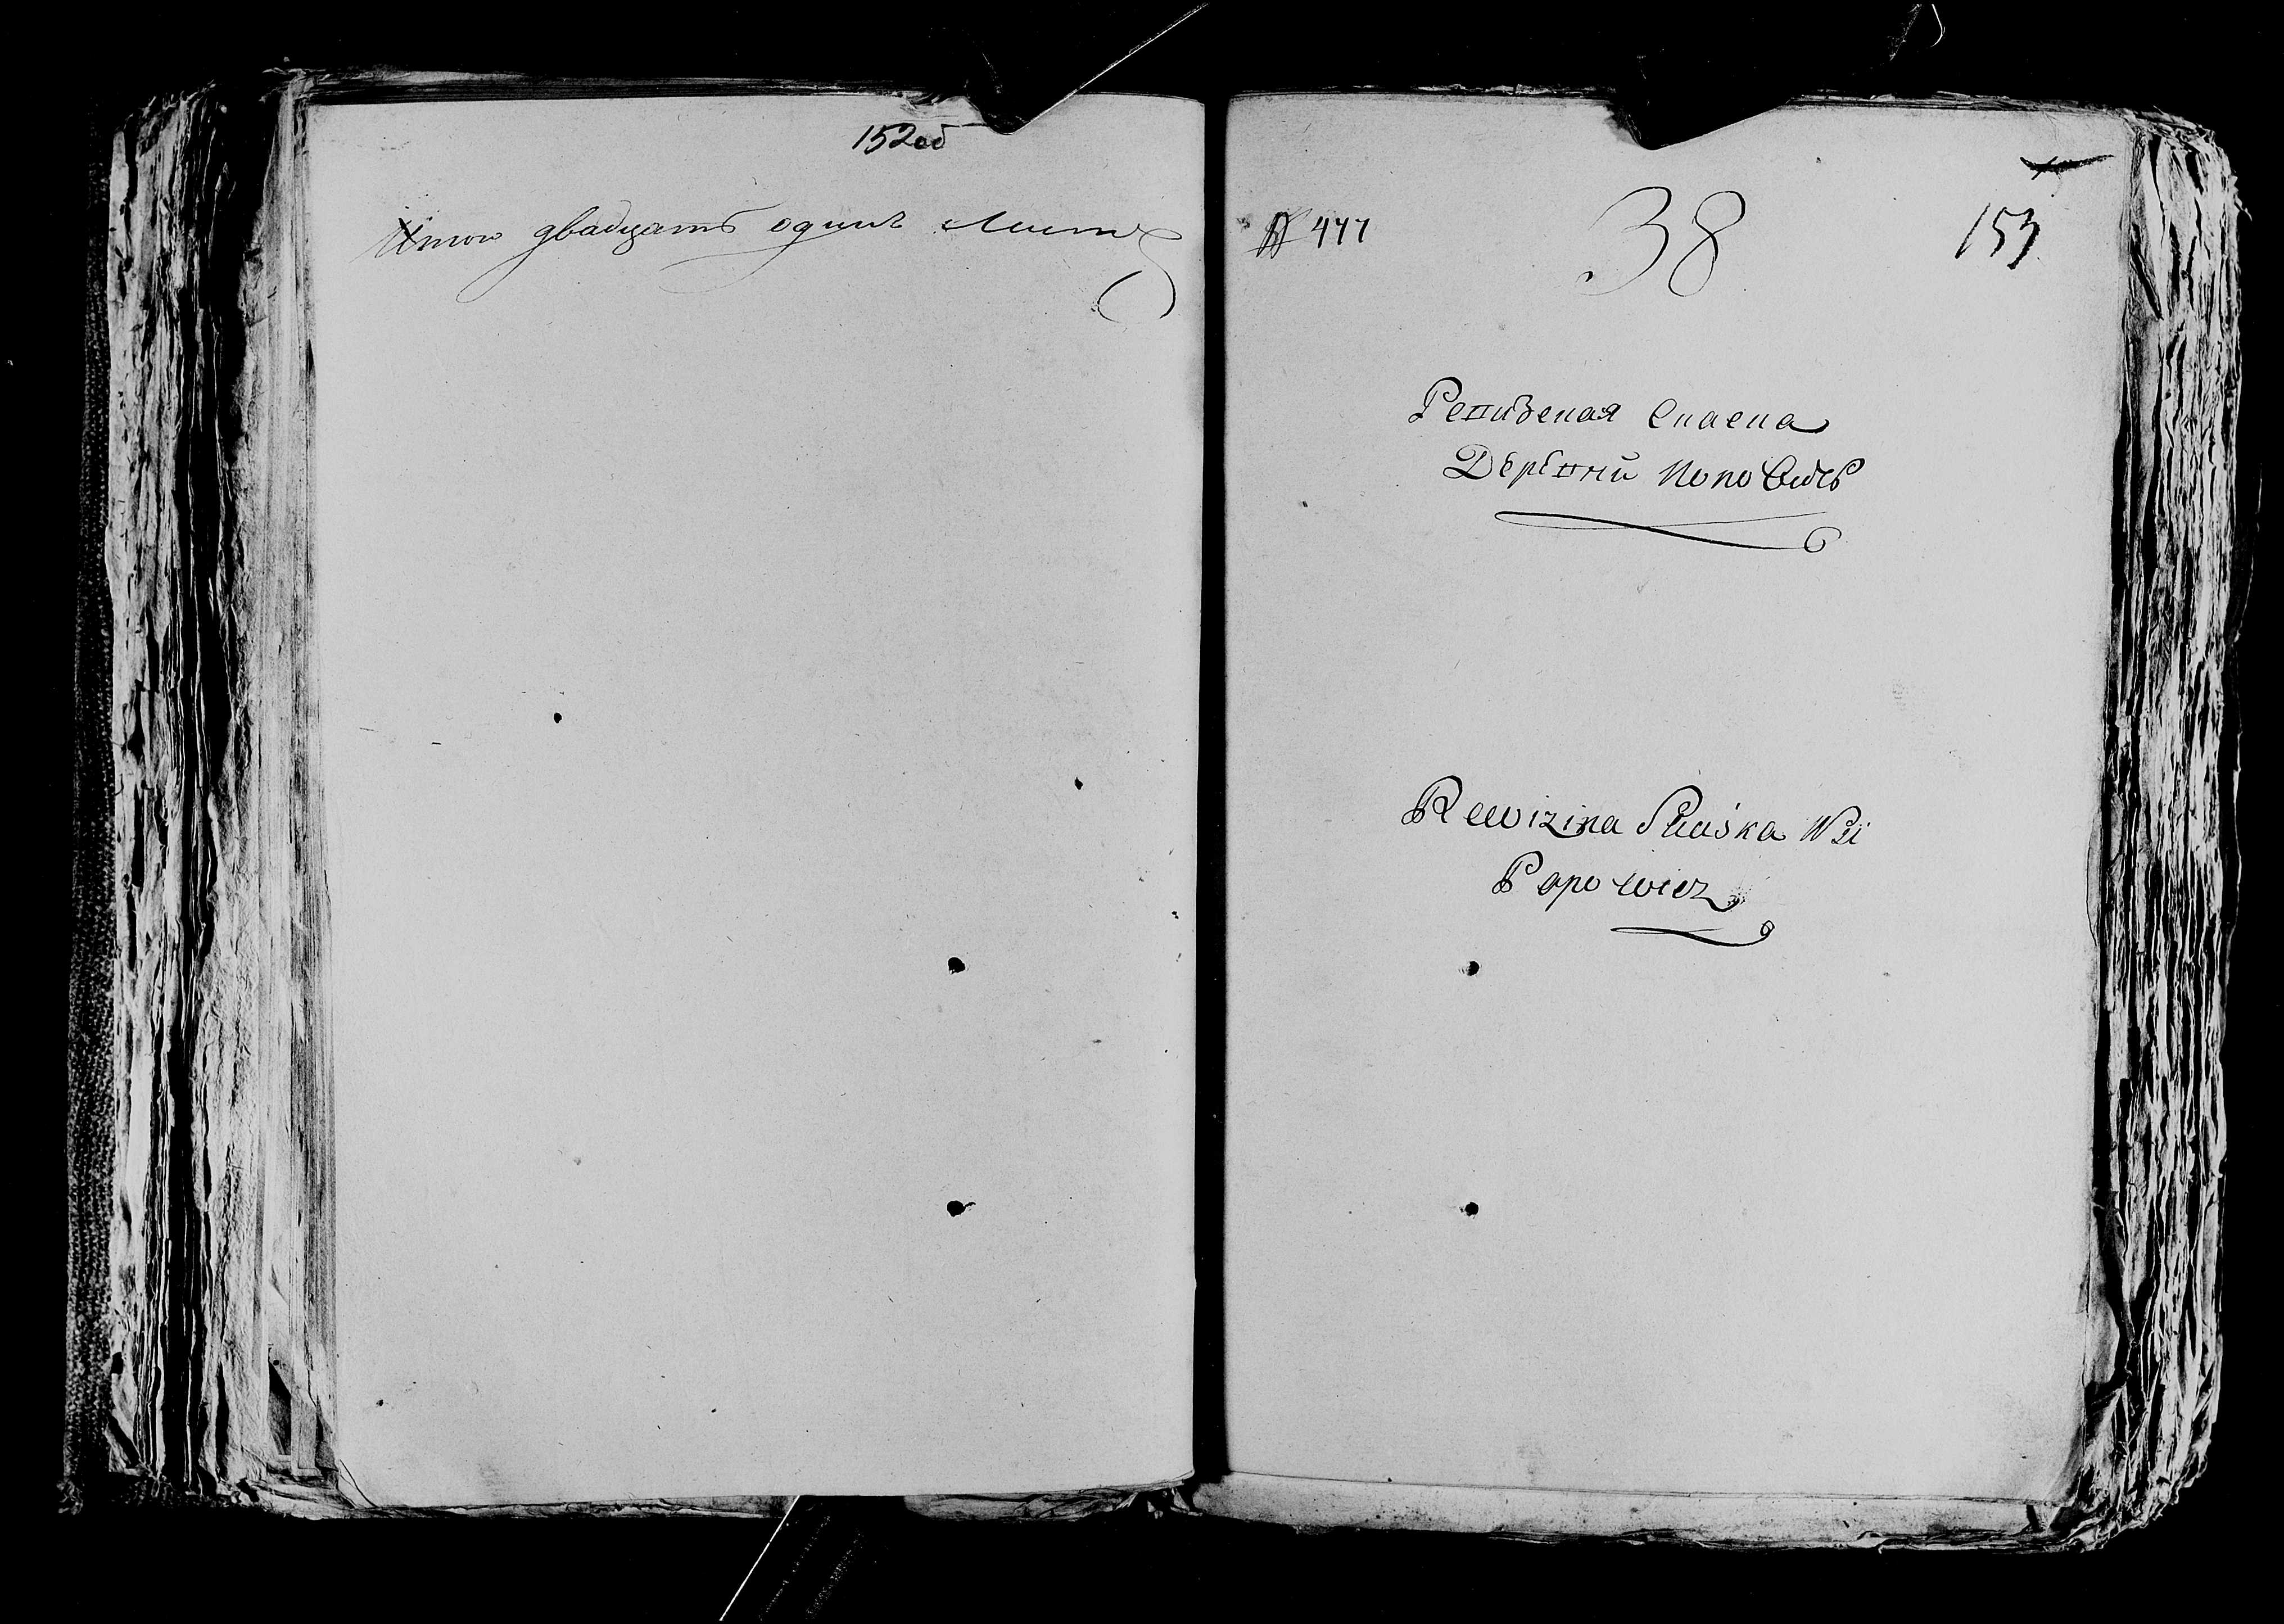 152об
Итого двадцать одинъ листъ
№ 477
38
153
Ревизская Сказка
Деревни Поповичь
Rewizina Skaska Wsi
Popowicz